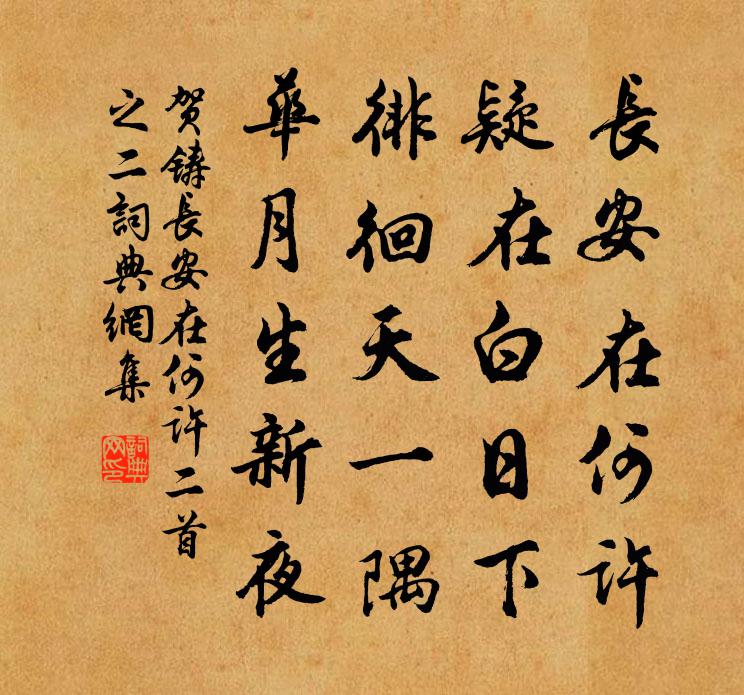 長安在何許
疑在白日下
徘徊天一隅
華月生新夜
賀鑄長安在何許二首
之二詞典網集
詞典
网印